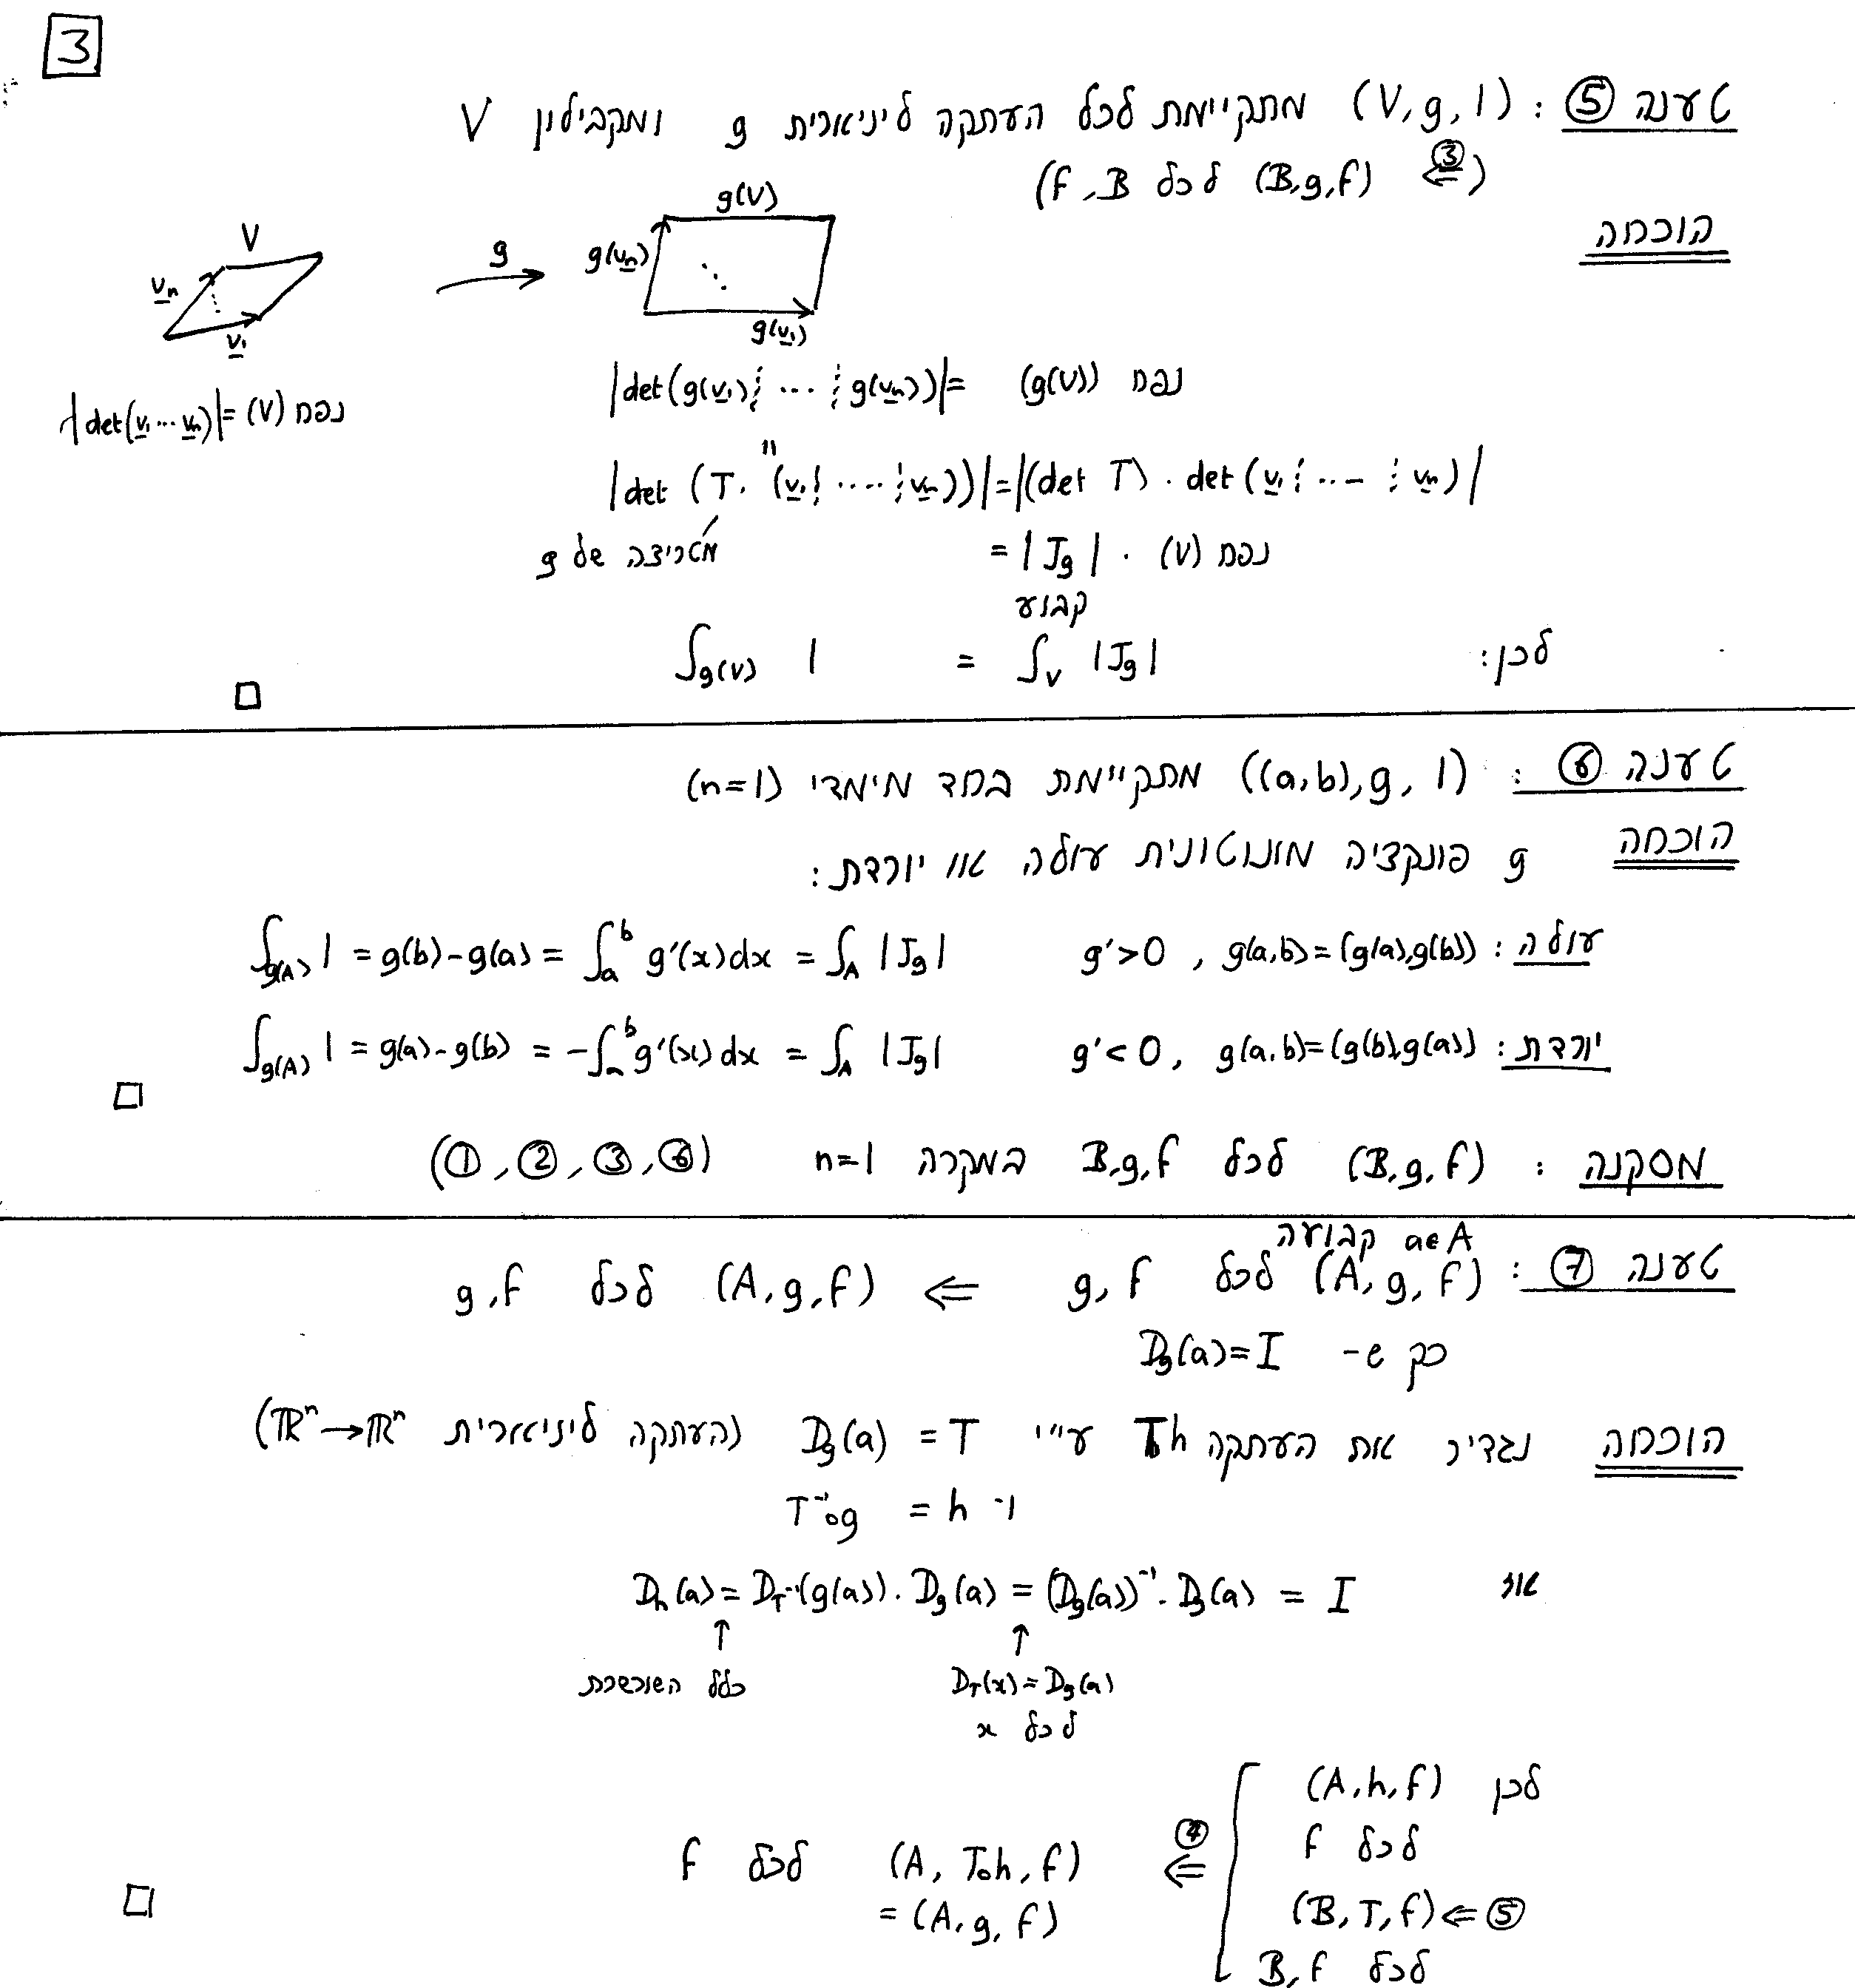 3
טענה ⑤ : (V, g, 1) מתקיימת לכל העתקה ליניארית g ומקבילון V
(⇐③ (B,g,f) לכל f, B)
הוכחה
V
v̲n
v̲1
g
g(V)
g(v̲n)
g(v̲1)
נפח (V) = |det(v̲1 ... v̲n)|
נפח (g(V)) = |det(g(v̲1)⋮ ... ⋮g(v̲n))|
"
|det (T· (v̲1⋮ .... ⋮v̲n))| = |(det T) · det (v̲1⋮ ... ⋮ v̲n)|
מטריצה של g
= |Jg| · נפח (V)
קבוע
לכן: ∫g(V) 1 = ∫V |Jg|
□
טענה ⑥ : ((a,b), g, 1) מתקיימת בחד מימדי (n=1)
הוכחה g פונקציה מונוטונית עולה או יורדת:
עולה : g(a,b)=(g(a),g(b)) , g'>0 ∫g(A) 1 = g(b)-g(a) = ∫a^b g'(x)dx = ∫A |Jg|
יורדת : g(a,b)=(g(b),g(a)) , g'<0 ∫g(A) 1 = g(a)-g(b) = -∫a^b g'(x)dx = ∫A |Jg|
□
מסקנה : (B,g,f) לכל B,g,f במקרה n=1 (①,②,③,⑥)
a∈A קבועה
טענה ⑦ : (A,g,f) לכל g,f ⇐ (A,g,f) לכל g,f
כך ש- Dg(a)=I
הוכחה נגדיר את העתקה T,h ע"י Dg(a) = T (העתקה ליניארית ℝⁿ→ℝⁿ)
ו- T⁻¹∘g = h
אז Dh(a) = DT⁻¹(g(a))·Dg(a) = (Dg(a))⁻¹·Dg(a) = I
↑ ↑
כלל השרשרת DT(x)=Dg(a)
לכל x
לכן (A,h,f)
לכל f
⑤⇒ (B,T,f)
לכל B,f
④⇒ (A, T∘h, f) לכל f
= (A,g,f)
□